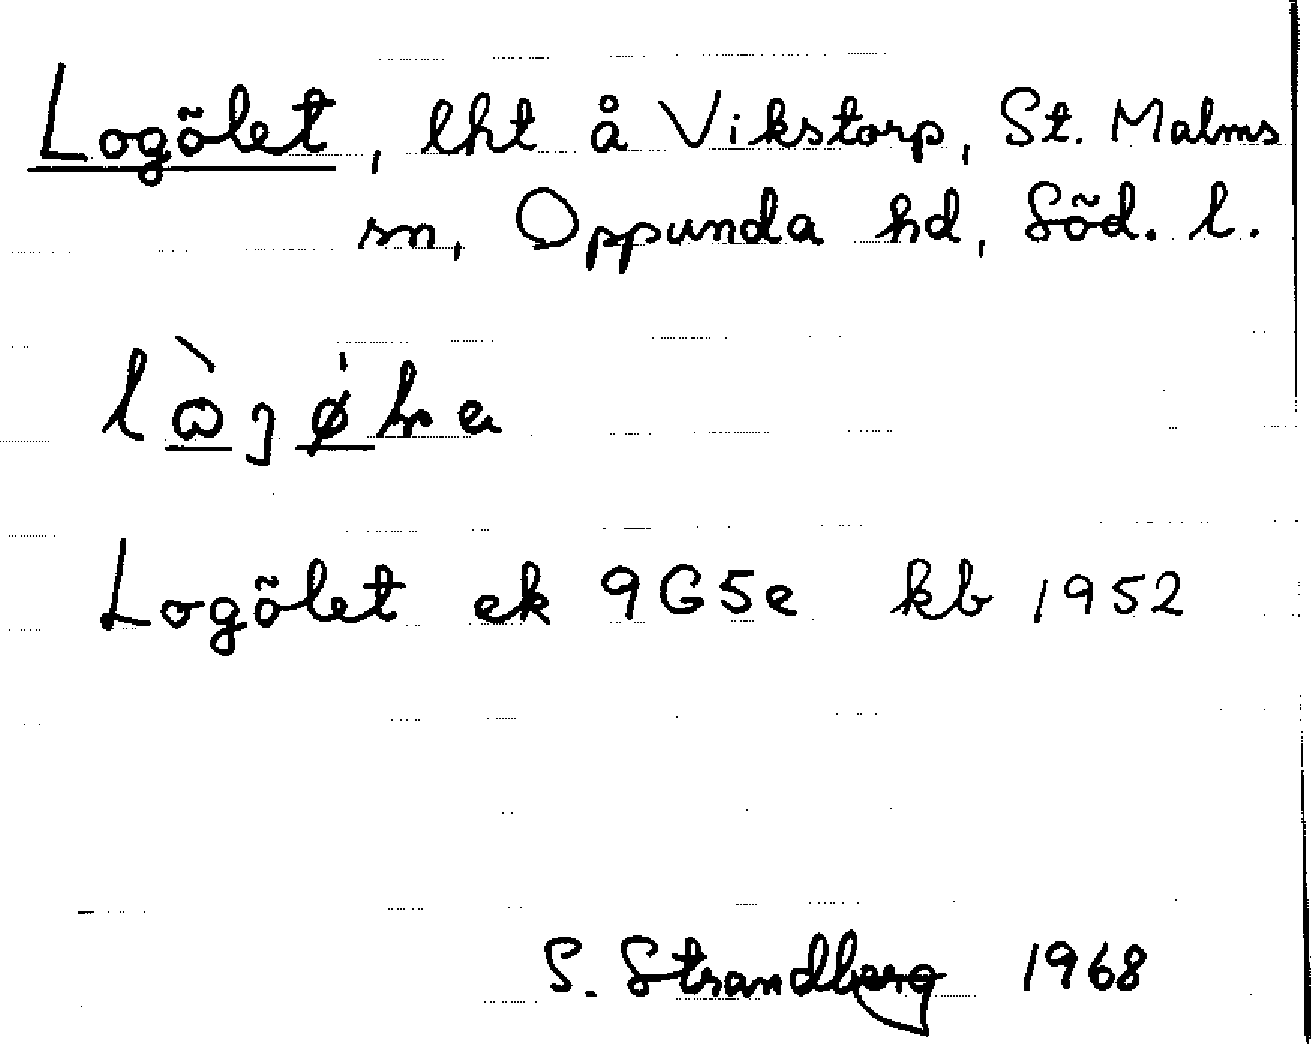 Logölet, lht å Vikstorp, St. Malms
sn, Oppunda hd, Söd. l.
Logölet ek 9G5e kb 1952
S. Strandberg 1968